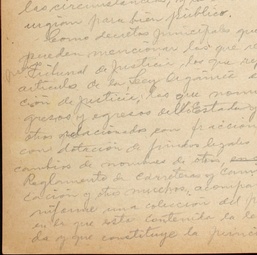 las circunstancias, y que
urgían para bien público.
Como decretos principales que
pueden mencionar los que re
Tribunal de Justicia, los que re
artículos de la Ley Orgánica d
ción de Justicia, los que nom
gresos y egresos del Estado y
otros relacionados con fracción
con dotación de fundos legales
cambios de nombres de otros,
Reglamento de Carreteras y Cami
cación y otros muchos. acompa
informe una colección del p
en la que está contenida la la
da y que constituye la prime